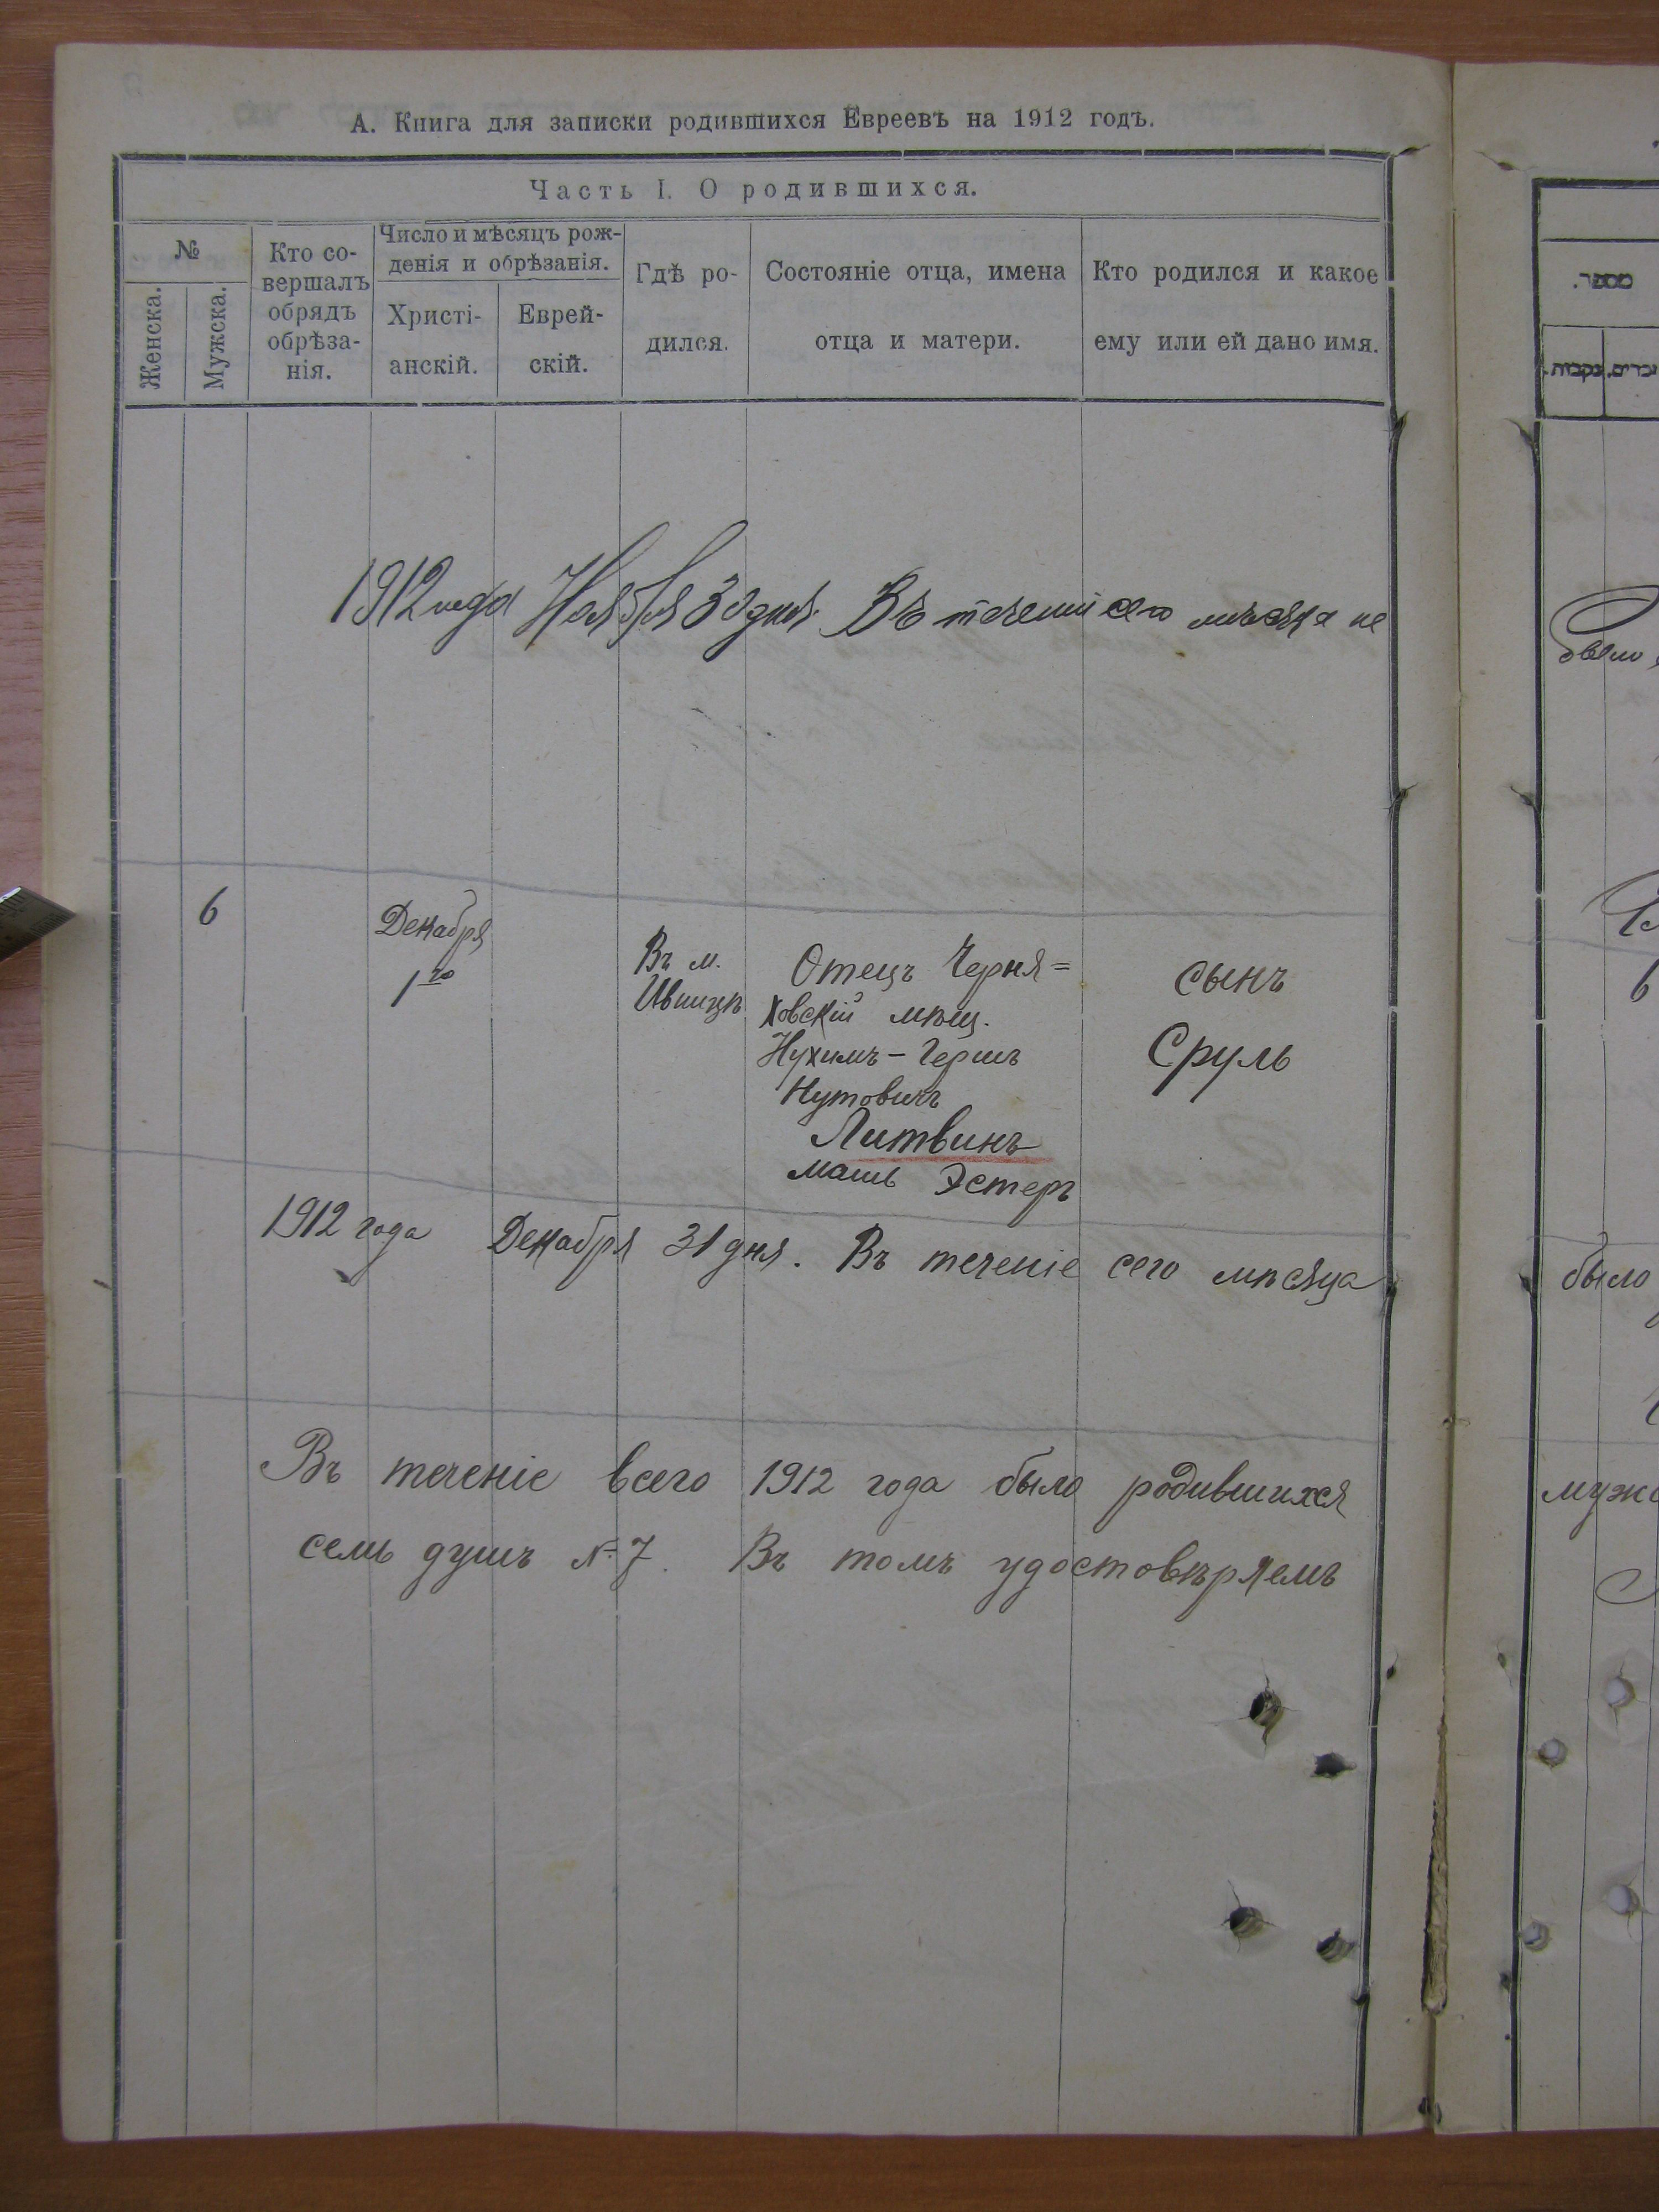 А. Книга для записки родившихся Евреевъ на 1912 годъ.
Часть I. О родившихся.
№
Женска.
Мужска.
Кто со-
вершалъ
обрядъ
обрѣза-
нія.
Число и мѣсяцъ рож-
денія и обрѣзанія.
Христі-
анскій.
Еврей-
скій.
Гдѣ ро-
дился.
Состояніе отца, имена
отца и матери.
Кто родился и какое
ему или ей дано имя.
1912 года Ноября 30 дня. Въ теченіи сего мѣсяца не
6
Декабря
1го
Въ м.
Ивницѣ
Отецъ Черня=
ховскій мѣщ.
Нухимъ-Гершъ
Нутовичъ
Литвинъ
мать Эстеръ
сынъ
Сруль
1912 года Декабря 31 дня. Въ теченіе сего мѣсяца
Въ теченіе всего 1912 года было родившихся
семь душъ № 7. Въ томъ удостовѣряемъ
מספר.
נקבות.
זכרים.
было
6
было